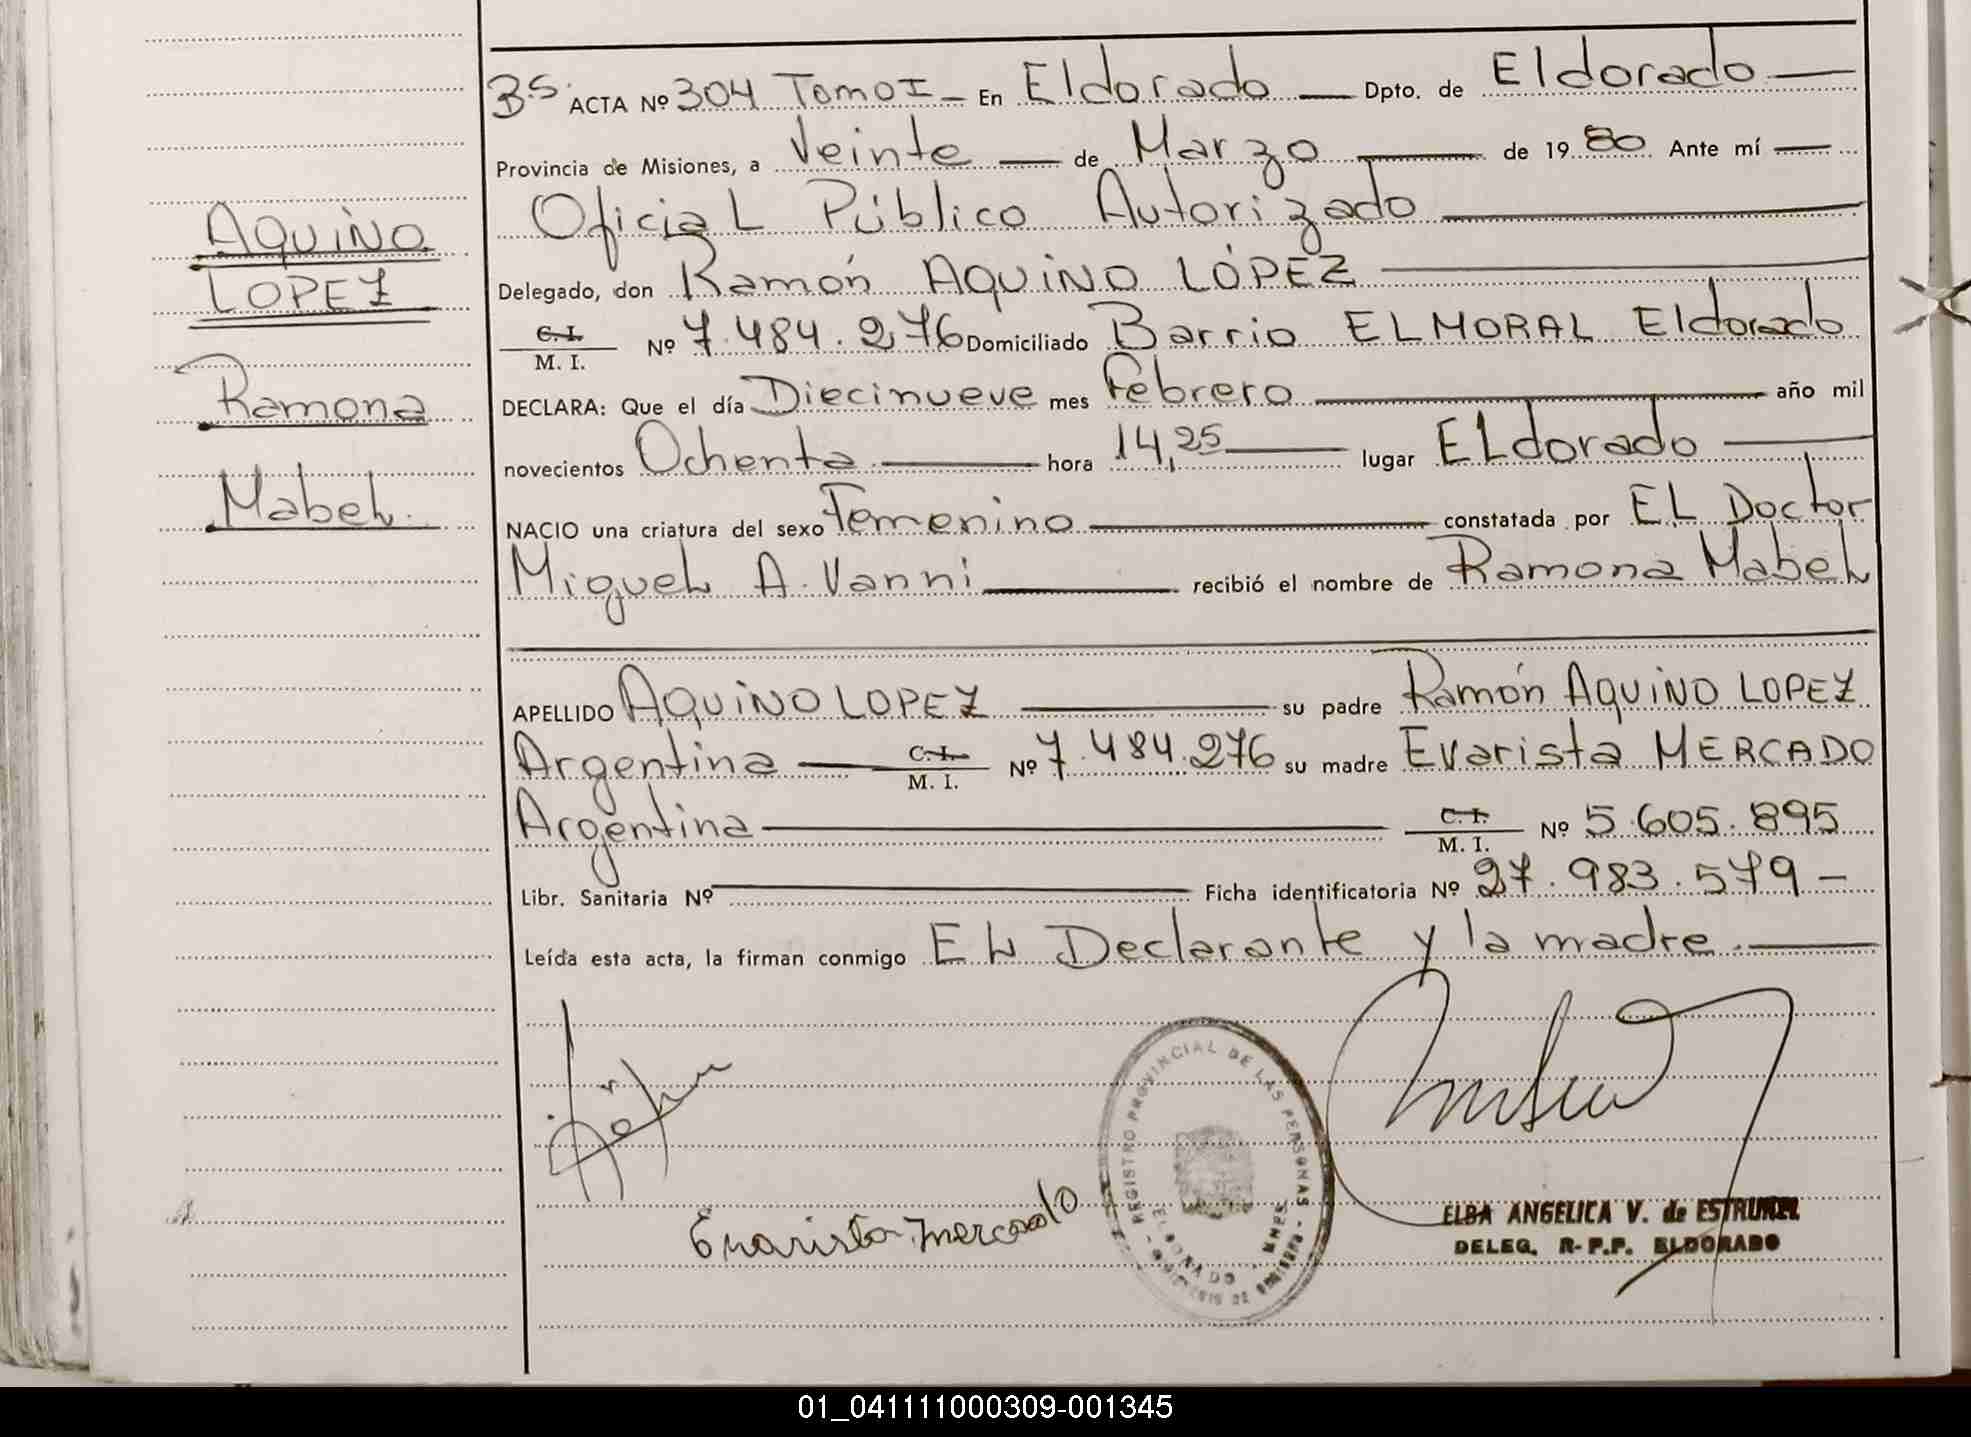 B.S. ACTA Nº 304 Tomo I - En Eldorado Dpto. de Eldorado
Provincia de Misiones, a Veinte de Marzo de 1980 Ante mí
Oficial Público Autorizado
AQUINO
LOPEZ
Ramona
Mabel.
Delegado, don Ramón AQUINO LÓPEZ
C.I.
M. I. Nº 7.484.276 Domiciliado Barrio EL MORAL Eldorado
DECLARA: Que el día Diecinueve mes Febrero año mil
novecientos Ochenta hora 14,25 lugar ELdorado
NACIO una criatura del sexo Femenino constatada por EL Doctor
Miguel A. Vanni recibió el nombre de Ramona Mabel
APELLIDO AQUINO LOPEZ su padre Ramón AQUINO LOPEZ
Argentina C.I. M. I. Nº 7.484.276 su madre Evarista MERCADO
Argentina C.I. M. I. Nº 5.605.895
Libr. Sanitaria Nº Ficha identificatoria Nº 27.983.579 -
Leída esta acta, la firman conmigo El Declarante y la madre.
Evarista mercado
REGISTRO PROVINCIAL DE LAS PERSONAS
ELDORADO - MNES.
ELBA ANGELICA V. de
DELEG. R.P.P. ELDORADO
01_041111000309-001345